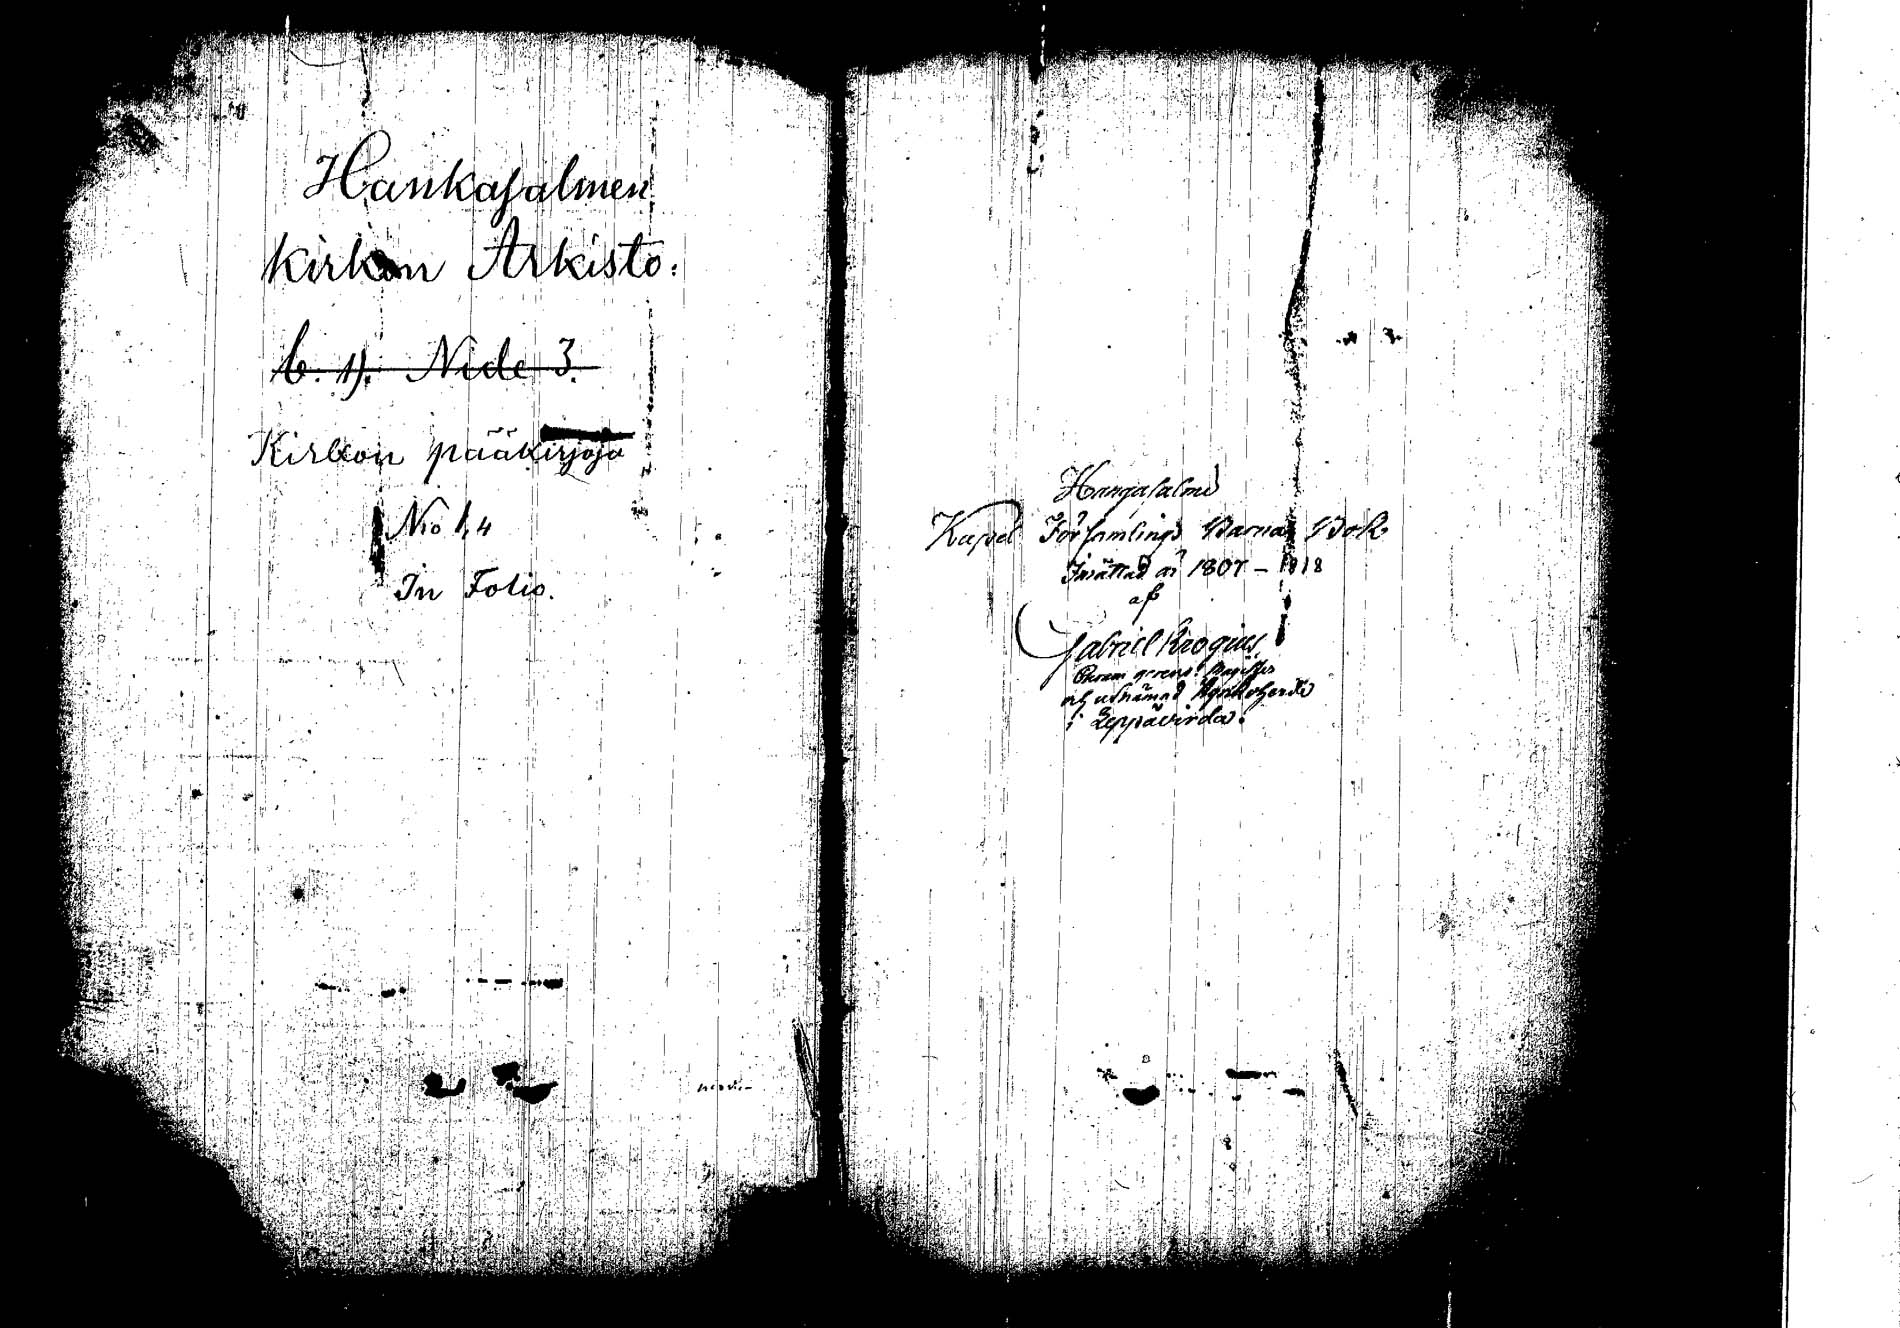 Hankasalmen
Kirkon Arkisto:
b. 1). Nide 3.
Kirkon pääkirjoja
No 1,4
In Folio.
Hangasalmi
Kapel Församlings Barna Bok
Inrättad år 1807 – 1818
af
Gabriel Krogius
och utnämnd Kyrkoherde
i Leppävirda.